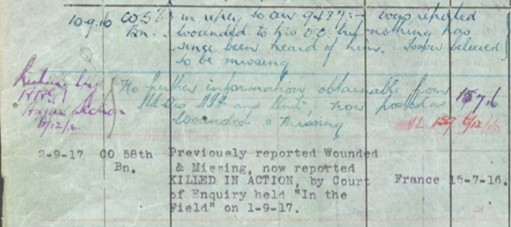 10.9.16 CO 58 in reply to our 9437:- was reported
Bn. wounded to his O.C. but nothing has
since been heard of him. Now believed
to be missing
No further information obtainable from
and Unit now posted as 15.7.16
Wounded & Missing 6/12/16
2-9-17 CO 58th Previously reported Wounded
Bn. & Missing, now reported
KILLED IN ACTION, by Court France 15-7-16.
of Enquiry held "In the
Field" on 1-9-17.